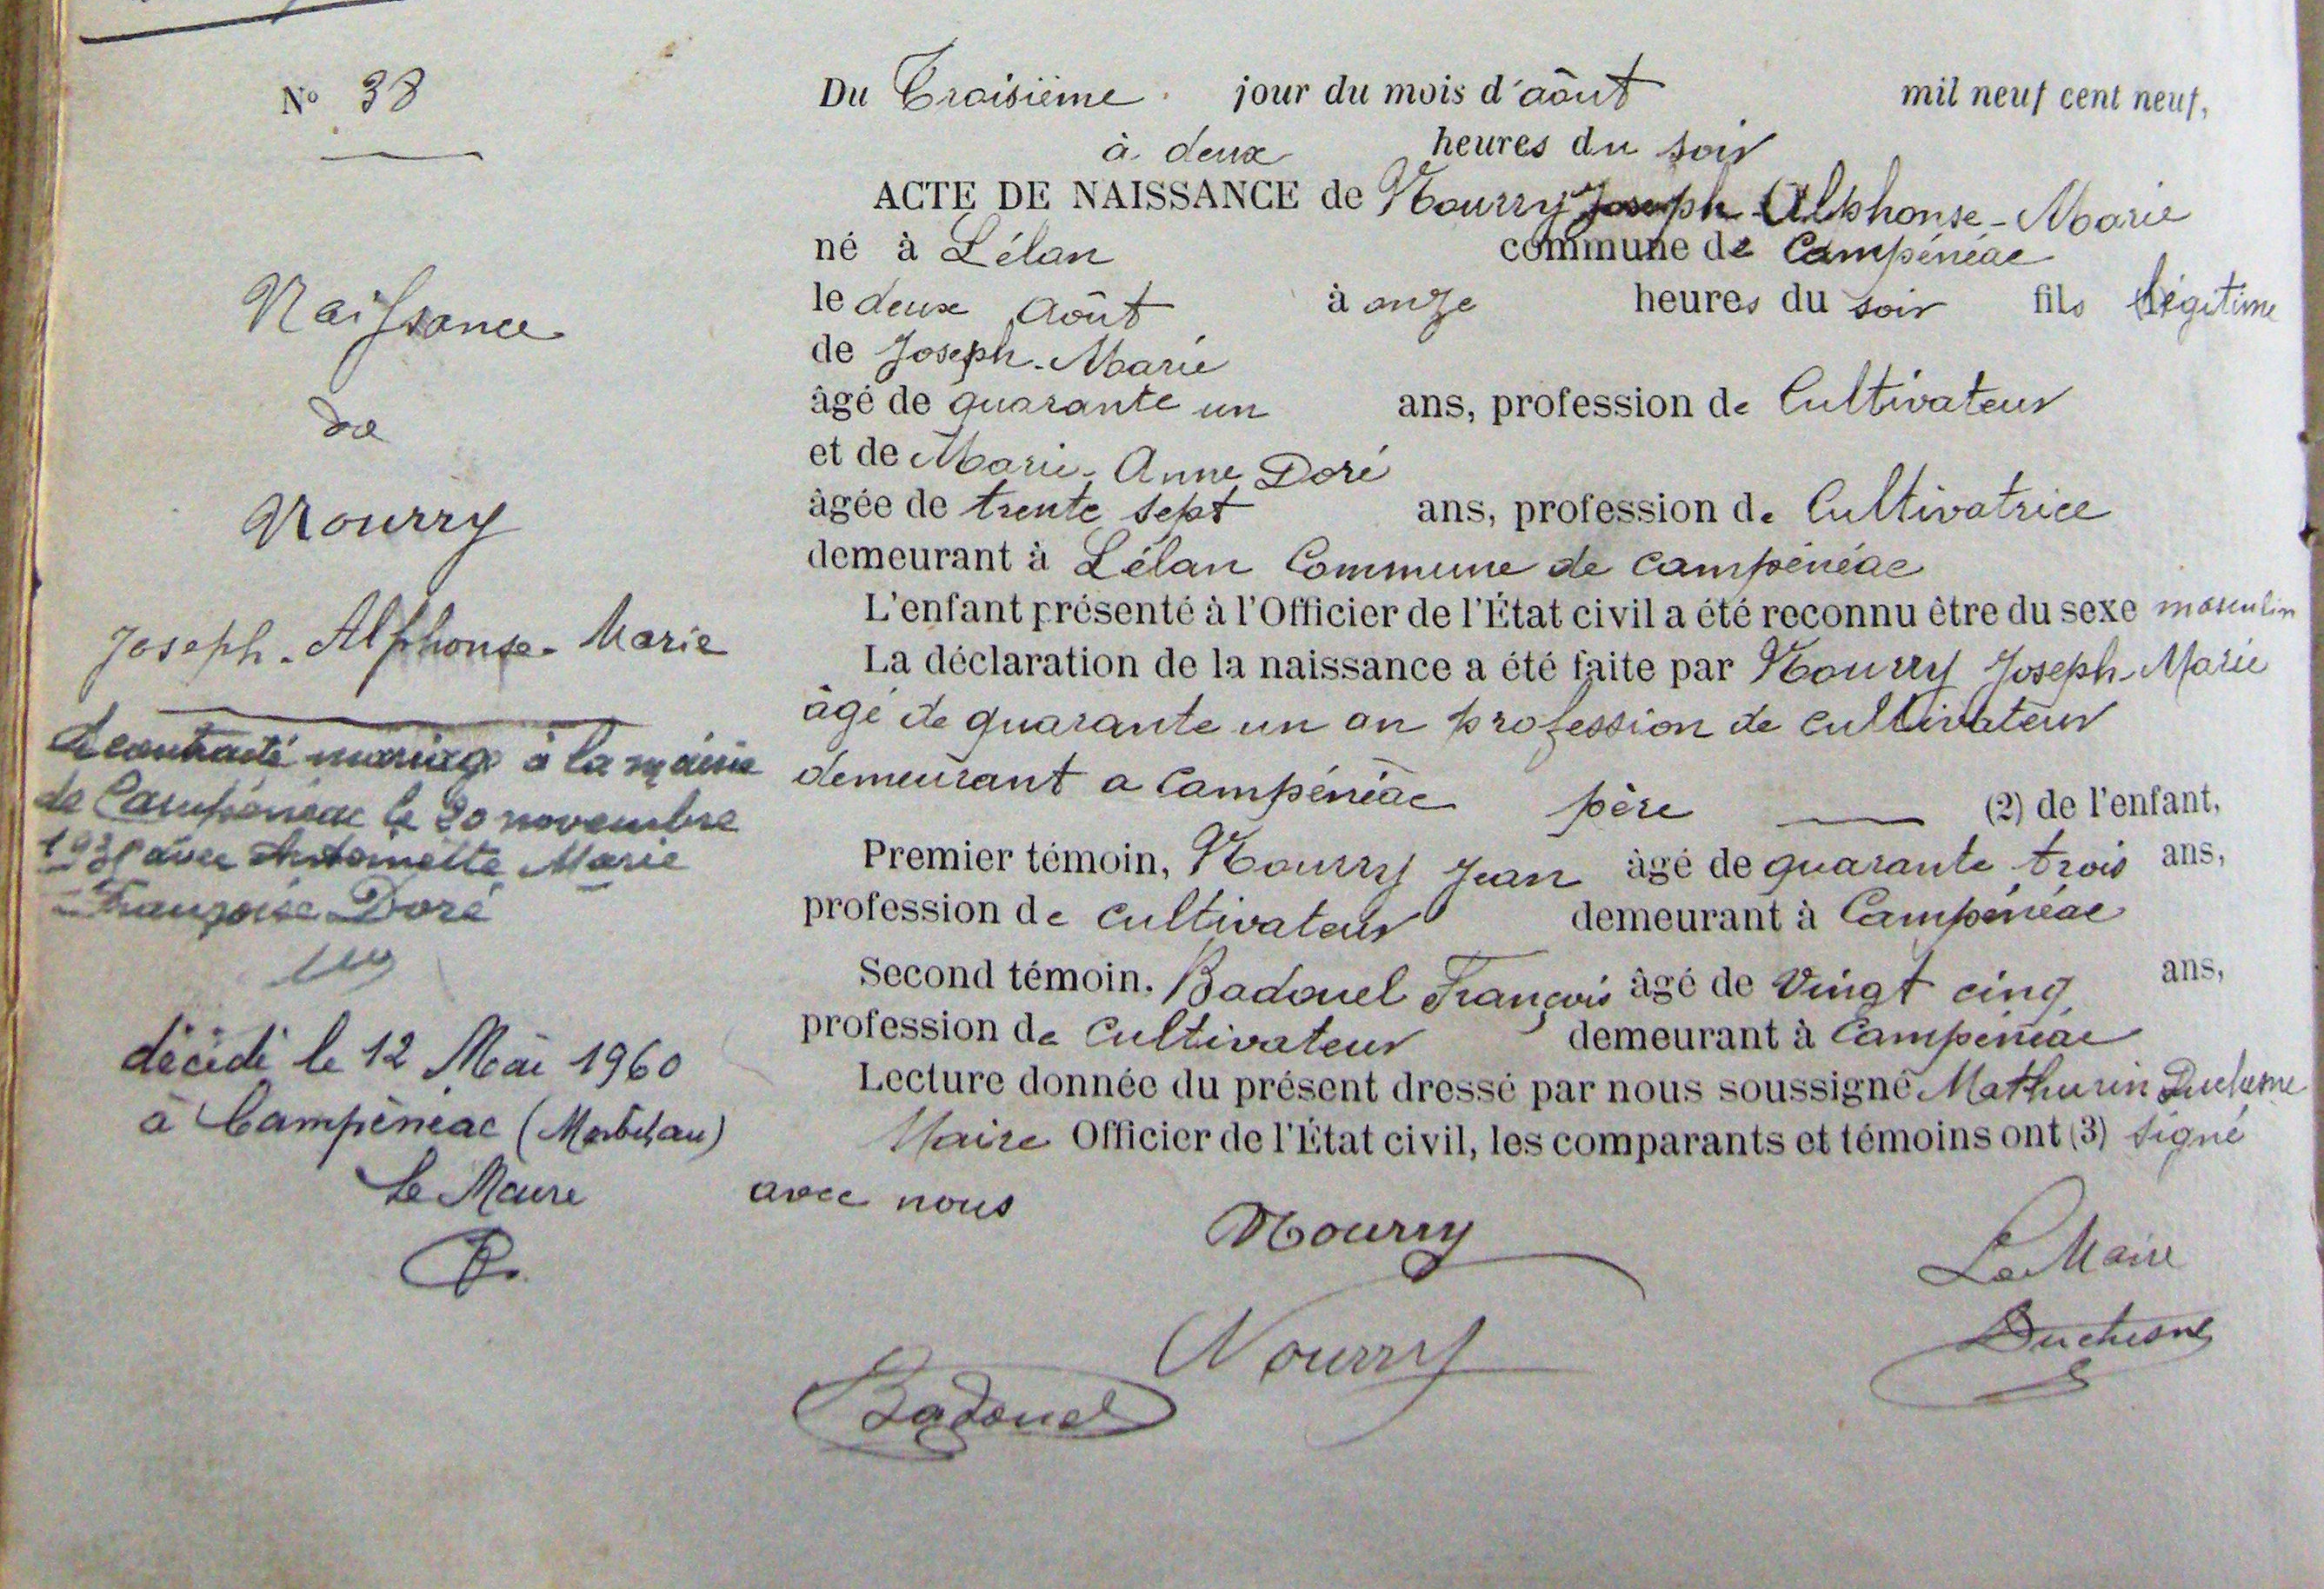 N° 38
Naissance
de
Nourry
Joseph-Alphonse-Marie
A contracté mariage à la mairie
de Campénéac le 20 novembre
avec Antoinette Marie
Françoise Doré
décédé le 12 Mai 1960
à Campénéac (Morbihan)
Le Maire
Du Troisième jour du mois d'août mil neuf cent neuf,
à deux heures du soir
ACTE DE NAISSANCE de Nourry Joseph-Alphonse-Marie
né à Lélan commune de Campénéac
le deux Août à onze heures du soir fils légitime
de Joseph-Marie
âgé de quarante un ans, profession de Cultivateur
et de Marie-Anne Doré
âgée de trente sept ans, profession de Cultivatrice
demeurant à Lélan Commune de Campénéac
L'enfant présenté à l'Officier de l'État civil a été reconnu être du sexe masculin
La déclaration de la naissance a été faite par Nourry Joseph-Marie
âgé de quarante un an profession de cultivateur
demeurant a Campénéac père (2) de l'enfant,
Premier témoin, Nourry Jean âgé de quarante trois ans,
profession de cultivateur demeurant à Campénéac
Second témoin. Badouel François âgé de Vingt cinq ans,
profession de Cultivateur demeurant à Campénéac
Lecture donnée du présent dressé par nous soussigné Mathurin Duchesne
Maire Officier de l'État civil, les comparants et témoins ont (3) signé
avec nous
Nourry
Le Maire
Nourry
Duchesne
Badouel